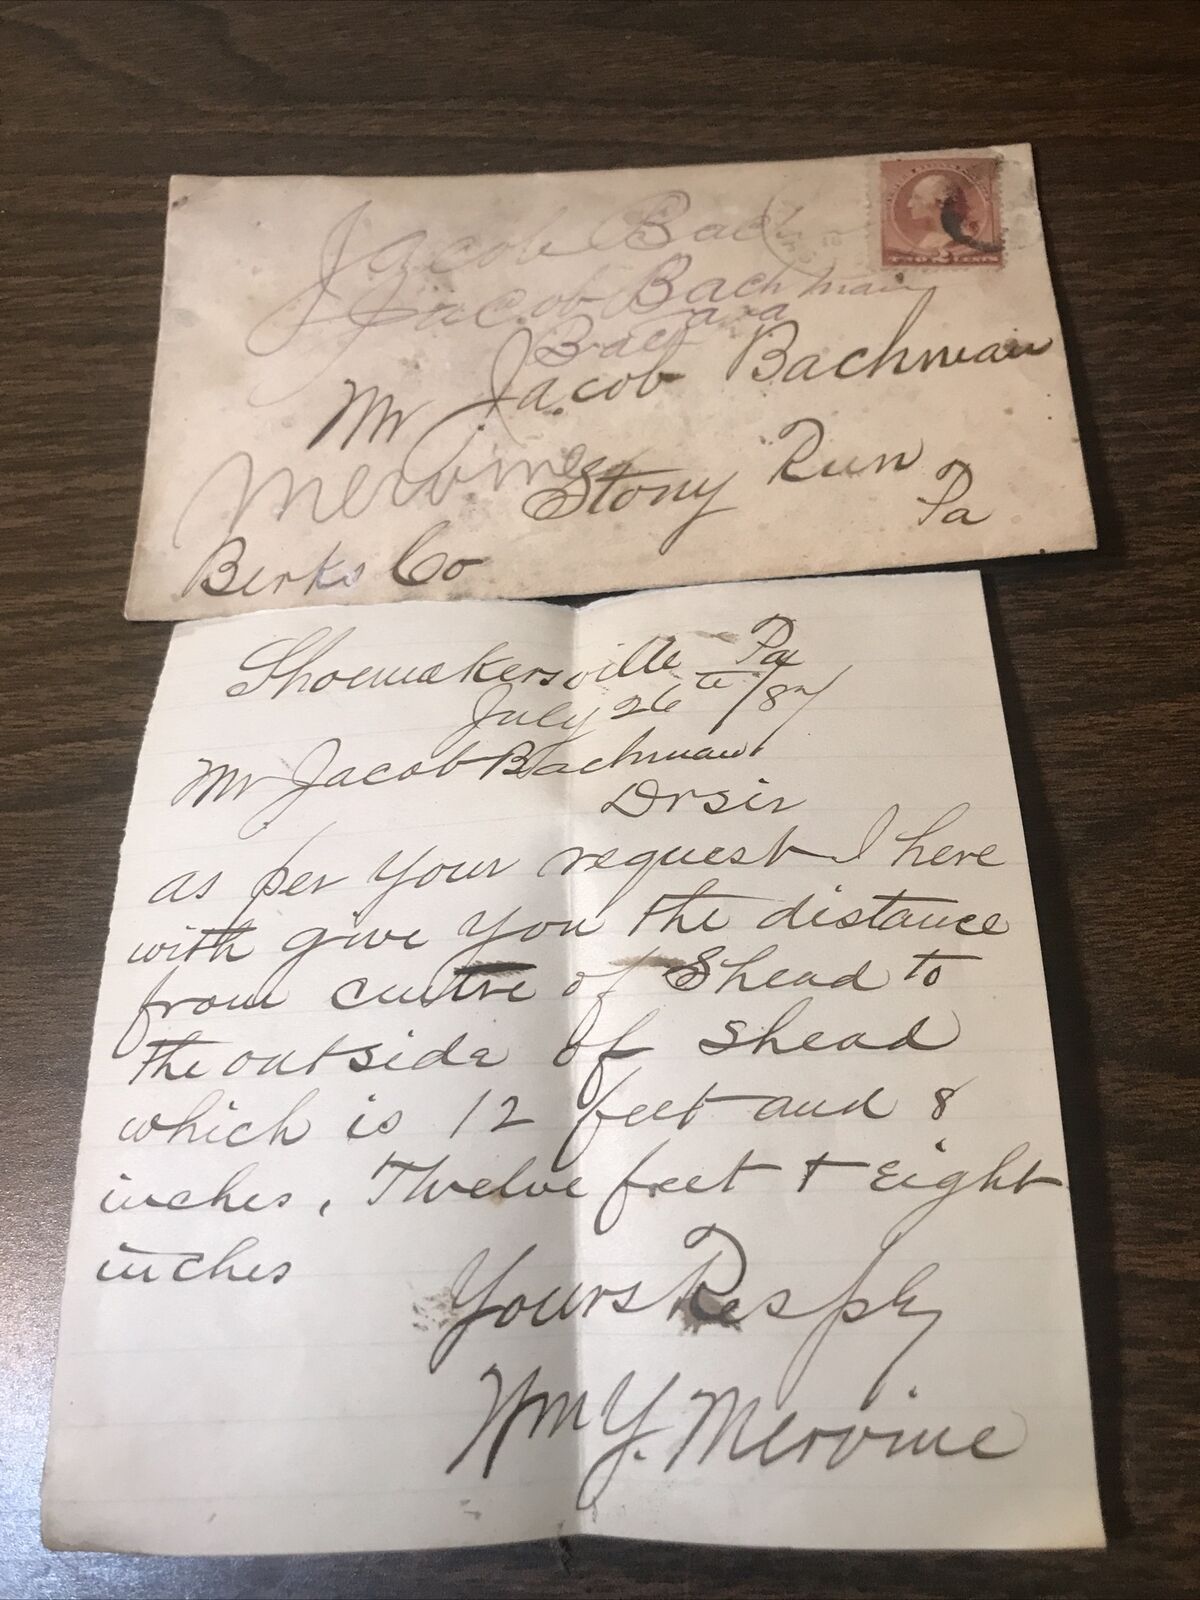 Jacob Bach
Jacob Bachman
Mr Jacob Bachman
Mervine
Stony Run
Pa
Berks Co
TWO 2 CENTS
Shoemakersville Pa
July 26th /87
Mr Jacob Bachman
Dr sir
as per your request I here
with give you the distance
from centre of Shead to
the outside of Shead
which is 12 feet and 8
inches, Twelve feet & Eight
inches
Yours Resply
Wm Y. Mervine